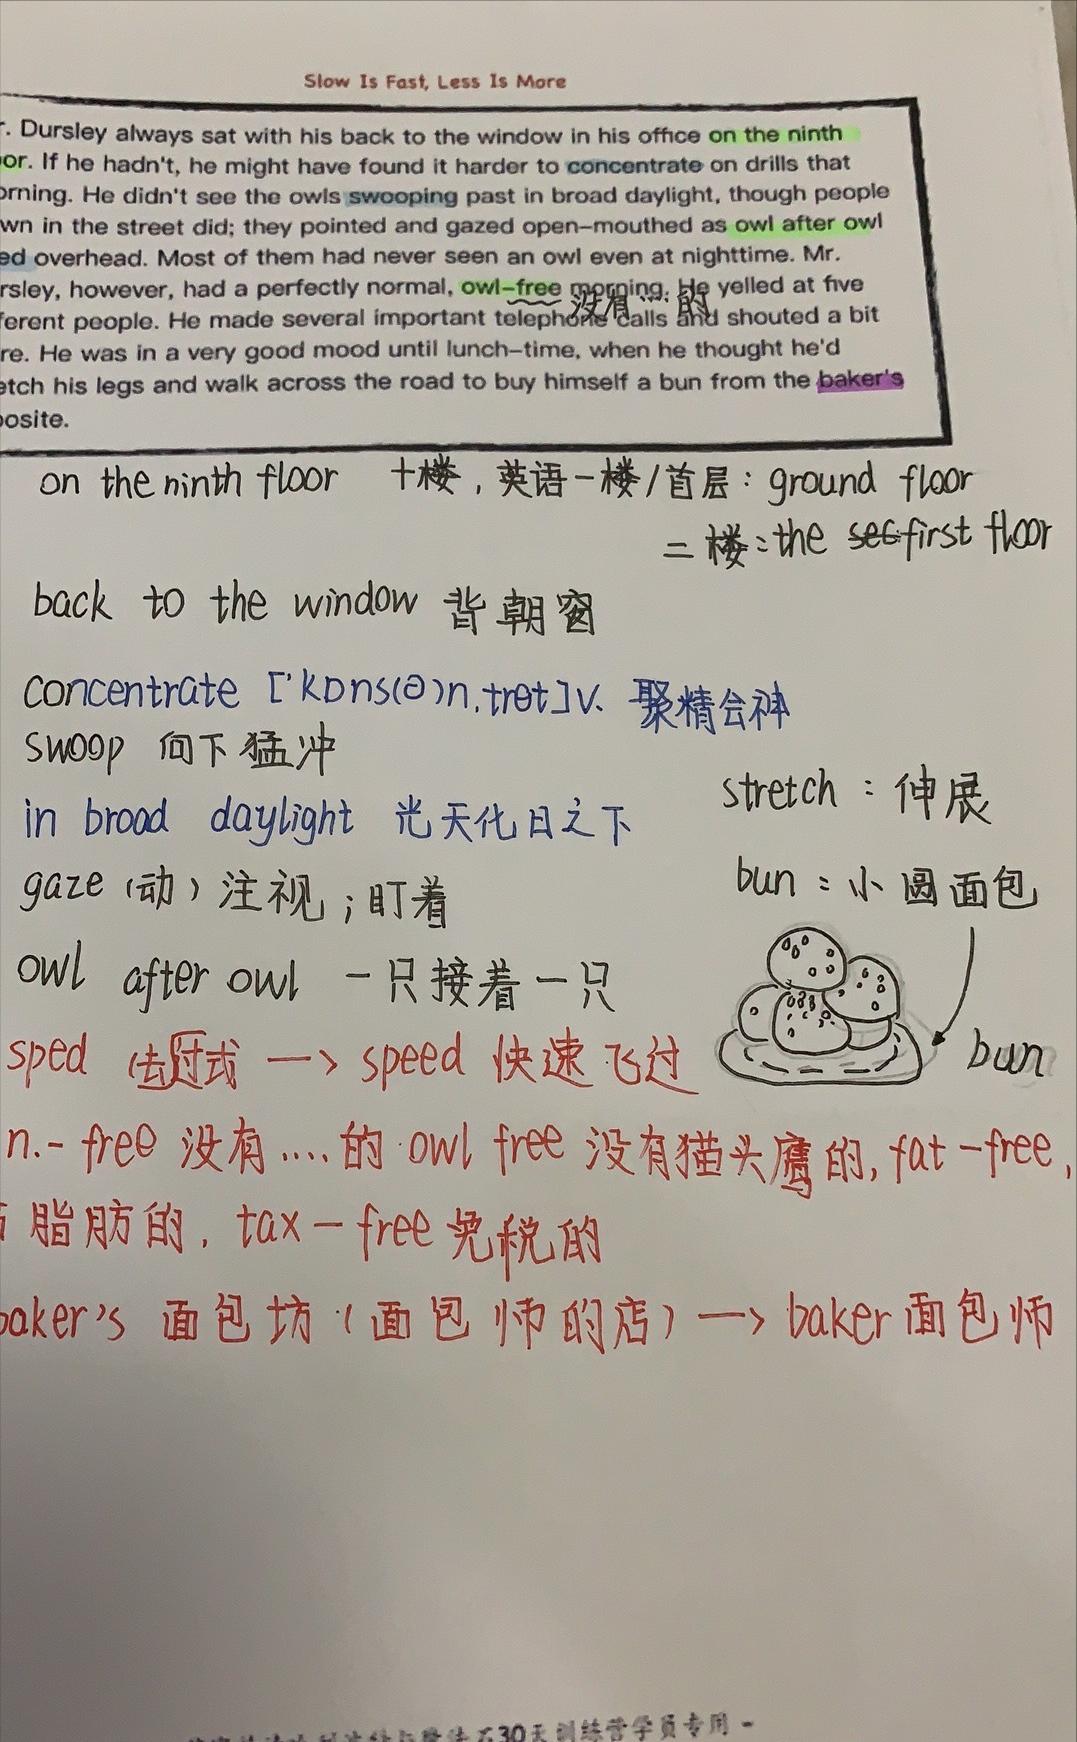 Slow Is Fast, Less Is More
r. Dursley always sat with his back to the window in his office on the ninth
or. If he hadn't, he might have found it harder to concentrate on drills that
orning. He didn't see the owls swooping past in broad daylight, though people
wn in the street did; they pointed and gazed open-mouthed as owl after owl
ed overhead. Most of them had never seen an owl even at nighttime. Mr.
rsley, however, had a perfectly normal, owl-free morning. He yelled at five
没有....的
ferent people. He made several important telephone calls and shouted a bit
re. He was in a very good mood until lunch-time, when he thought he'd
etch his legs and walk across the road to buy himself a bun from the baker's
posite.
on the ninth floor 十楼, 英语一楼/首层: ground floor
二楼: the first floor
back to the window 背朝窗
concentrate ['kɒns(ə)n,tret]v. 聚精会神
swoop 向下猛冲
stretch : 伸展
in broad daylight 光天化日之下
gaze (动) 注视; 盯着
bun : 小圆面包
owl after owl 一只接着一只
bun
sped 过式 —> speed 快速飞过
n.- free 没有....的 owl free 没有猫头鹰的, fat-free,
脂肪的, tax-free 免税的
baker's 面包坊 (面包师的店) —> baker 面包师
30天训练营学员专用 -